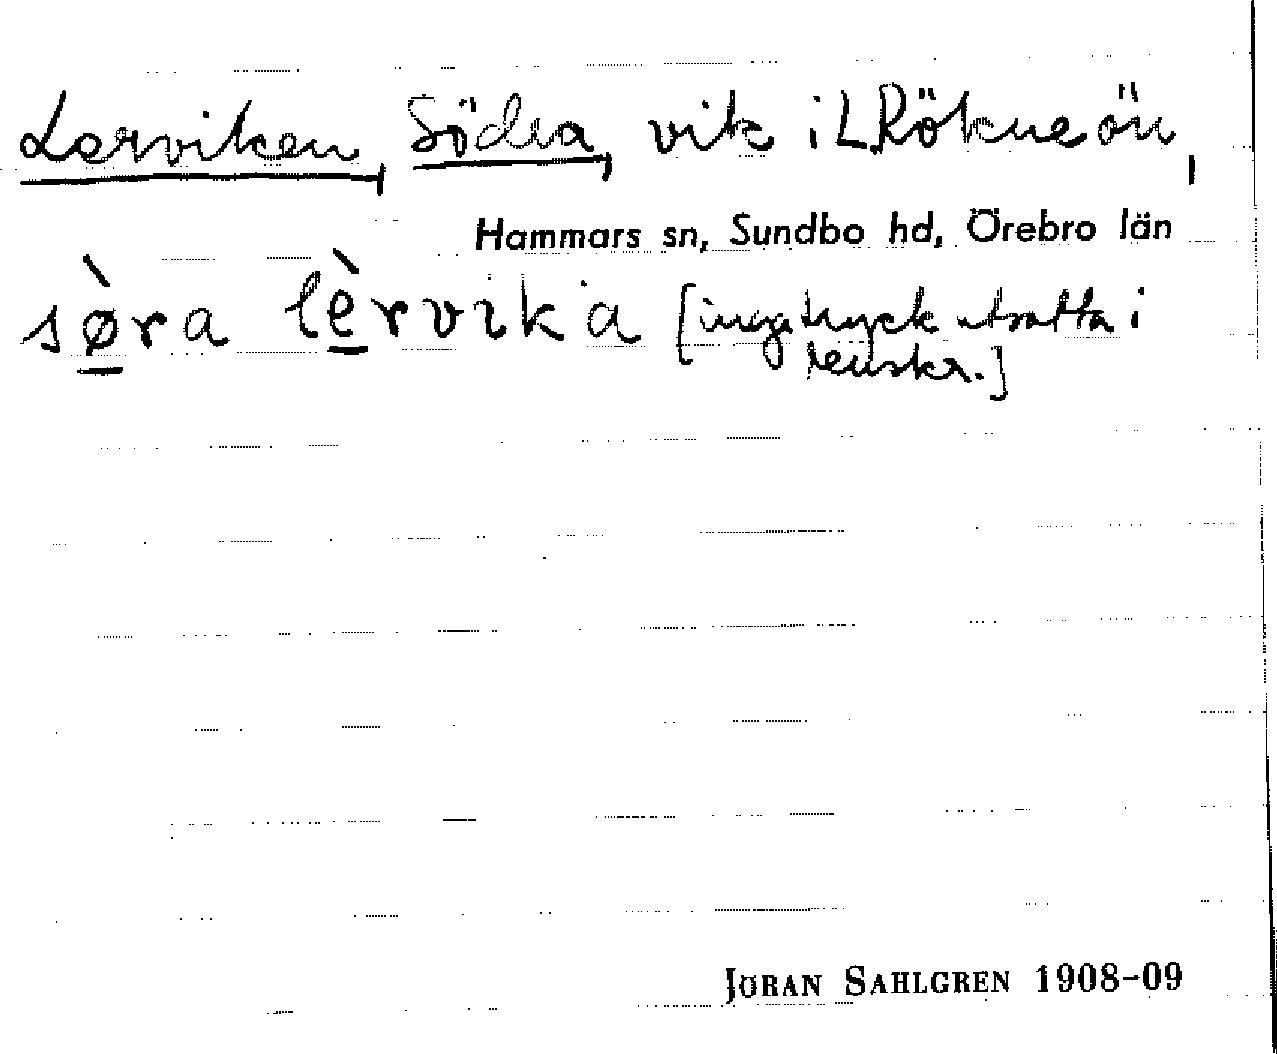 Lerviken, Södra, vik i L. Rökneön,
Hammars sn, Sundbo hd, Örebro län
sø̀ra lèrvika [inga tryck utsatta i
renskr.]
JÖRAN SAHLGREN 1908-09